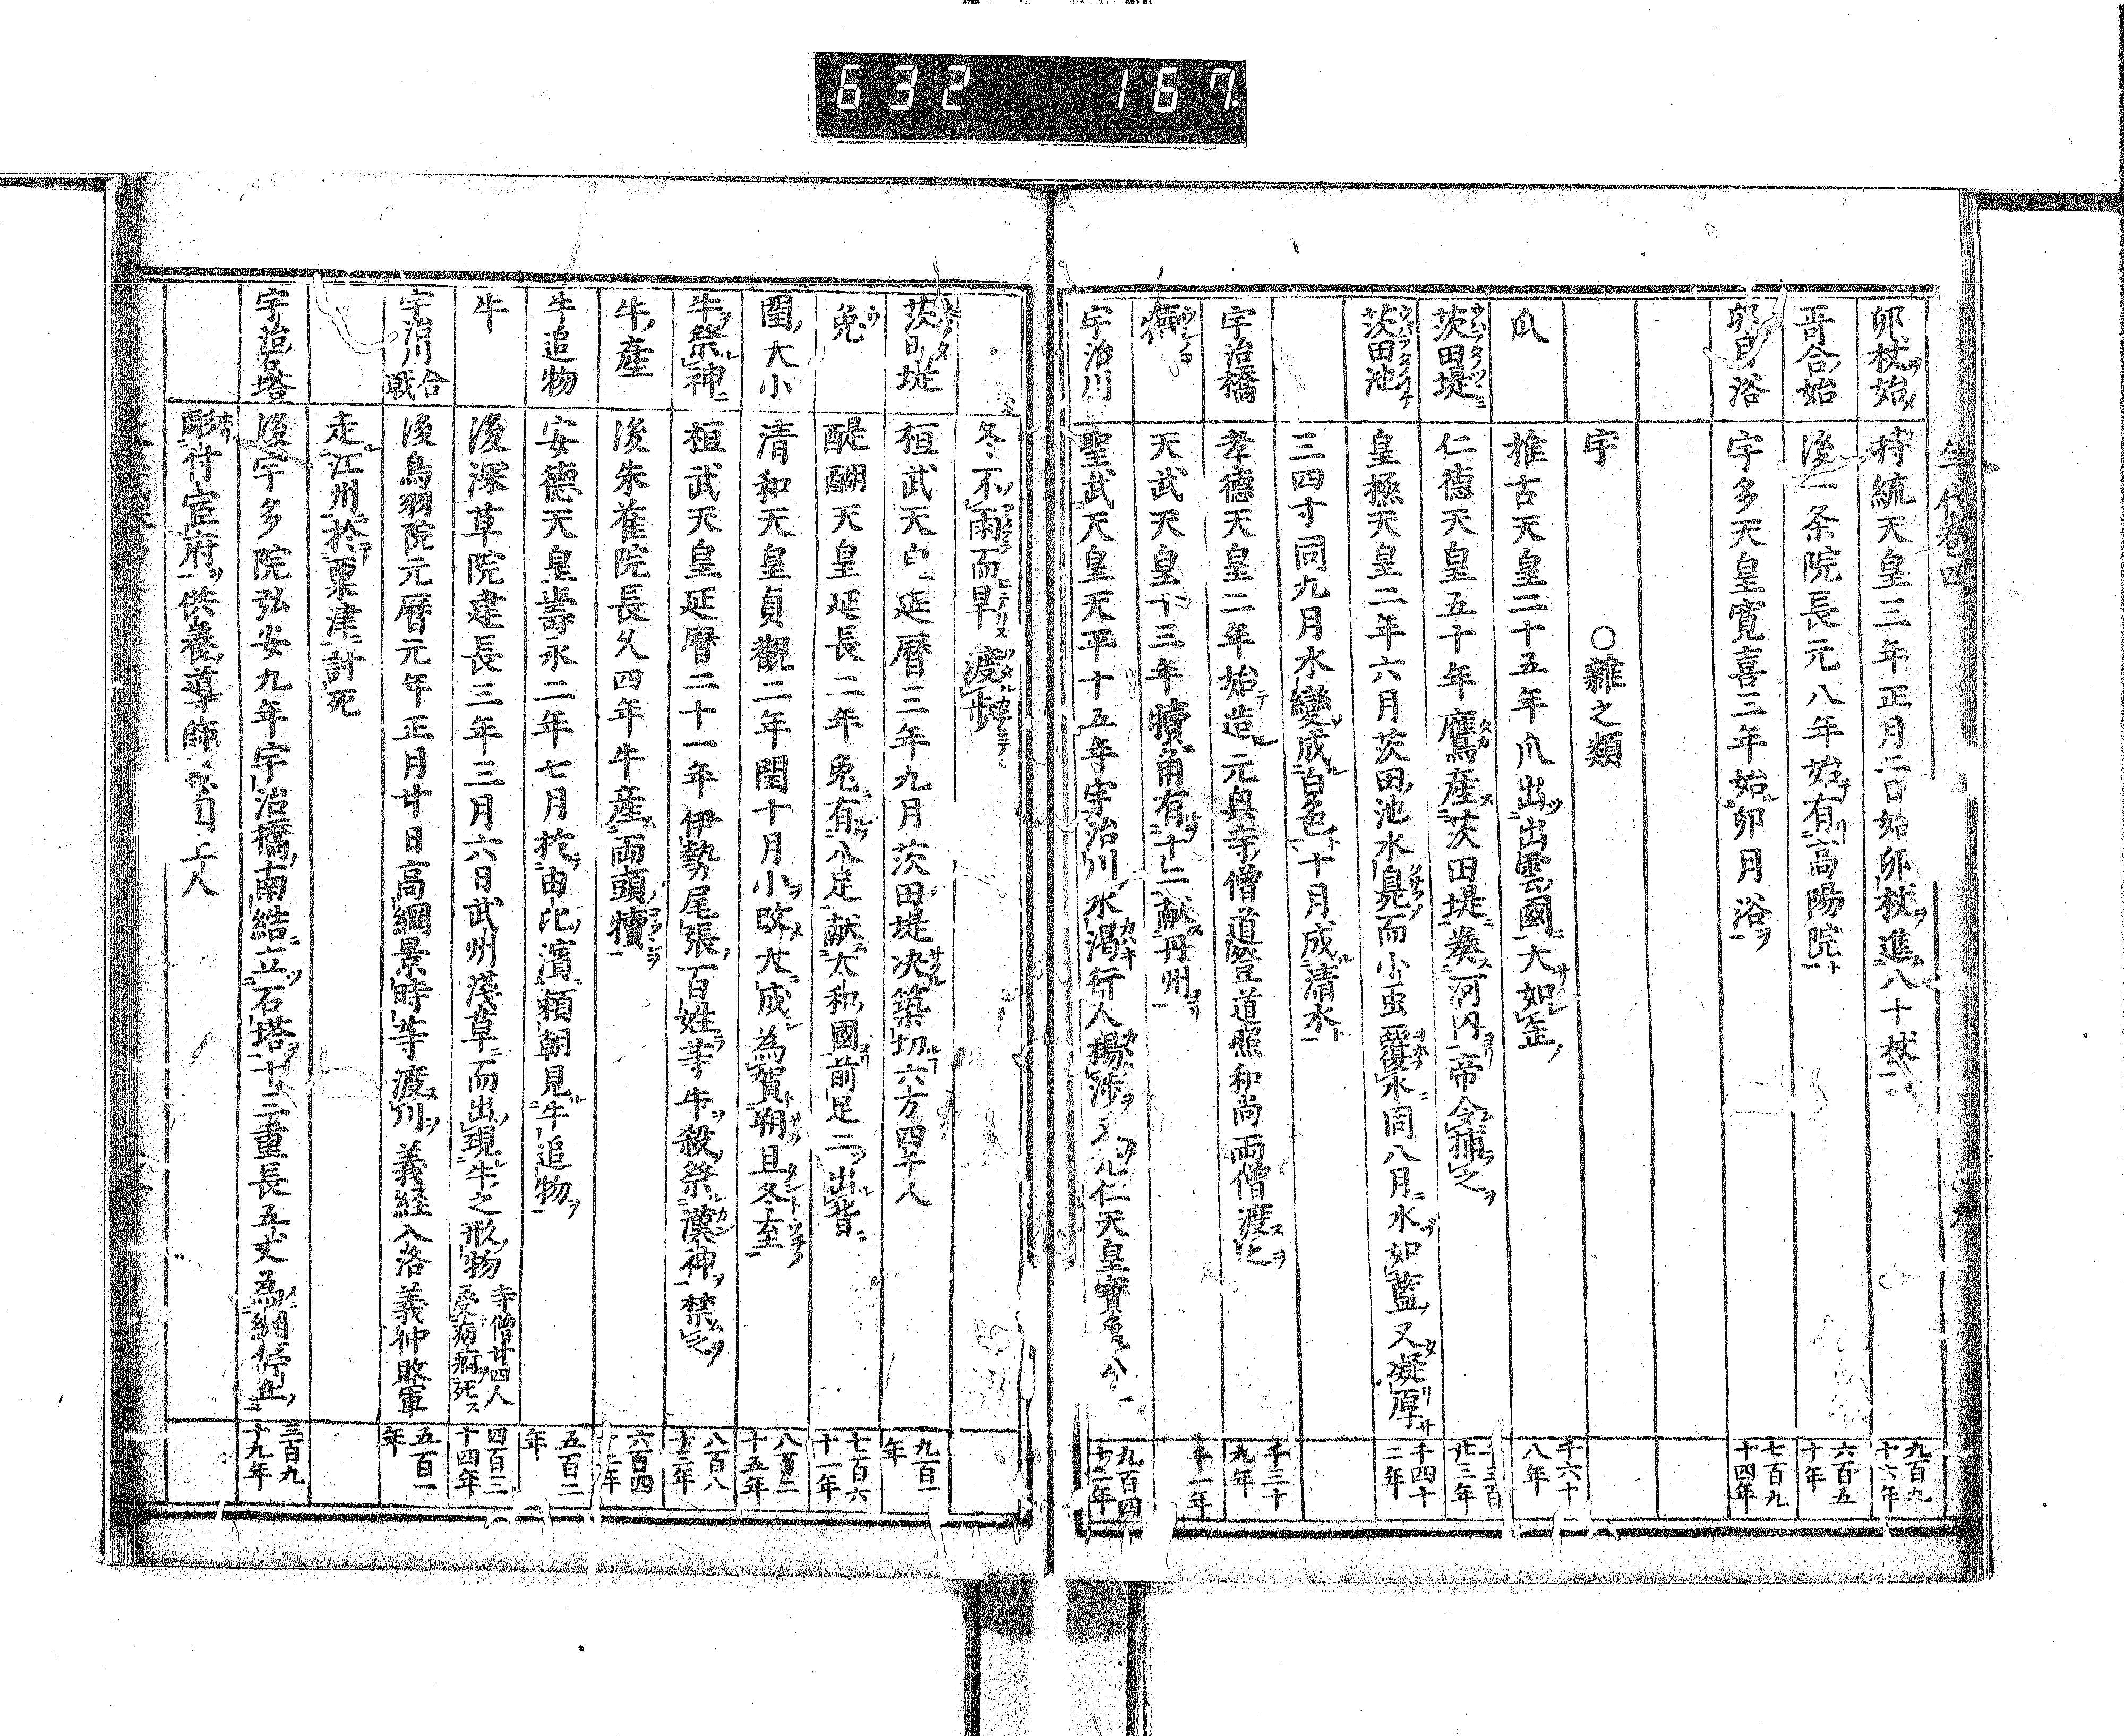 632 167.
年代巻四
卯杖始 持統天皇三年正月二日始卯杖進八十杖 九百九十六年
哥合始 後一条院長元八年始有高陽院 六百五十年
卯月浴 宇多天皇寛喜三年始卯月浴 七百九十四年
宇 ○雜之類
瓜 推古天皇二十五年瓜出出雲國大如缶 千六十八年
茨田堤 仁德天皇五十年鴈産茨田堤奏河内帝令捕之
茨田池 皇極天皇二年六月茨田池水臰而小虫覆水同八月水如藍又凝厚 千四十二年
三四寸同九月水變成白色十月成清水
宇治橋 孝德天皇二年始造元興寺僧道登道照和尚両僧渡之 千三十九年
犢 天武天皇十三年犢角有十二献丹州 千一年
宇治川 聖武天皇天平十五年宇治川水渇行人楊渉又光仁天皇寳亀八 九百四十二年
冬不雨而旱渡歩
茨田堤 桓武天皇延曆三年九月茨田堤决築切六万四千人 九百一年
兎 醍醐天皇延長二年兎有八足献太和國前足二出背 七百六十一年
閏大小 清和天皇貞觀二年閏十月小改大成為賀朔旦冬至 八百二十五年
牛祭神 桓武天皇延曆二十一年伊勢尾張百姓等牛殺祭漢神禁之 八百八十三年
牛産 後朱雀院長久四年牛産両頭犢 六百四十二年
牛追物 安德天皇壽永二年七月於由比濱頼朝見牛追物 五百二年
牛 後深草院建長三年三月六日武州淺草而出現牛之形物 寺僧廿四人受病痾死 四百三十四年
宇治川合戦 後鳥羽院元曆元年正月廿日高綱景時等渡川義経入洛義仲敗軍 五百一年
走江州於粟津討死
宇治石塔 後宇多院弘安九年宇治橋南結立石塔十三重長五丈為網停止 三百九十九年
彫付宦府供養導師 上人